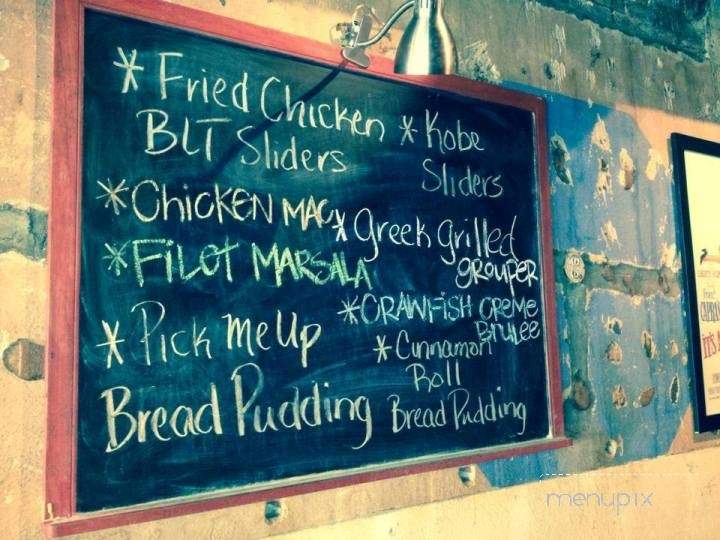 * Fried Chicken
BLT Sliders
* Chicken Mac
* Filet Marsala
* Pick Me Up
Bread Pudding
* Kobe
Sliders
* Greek Grilled
Grouper
* Crawfish Creme
Brulee
* Cunnamon
Roll
Bread Pudding
menupix